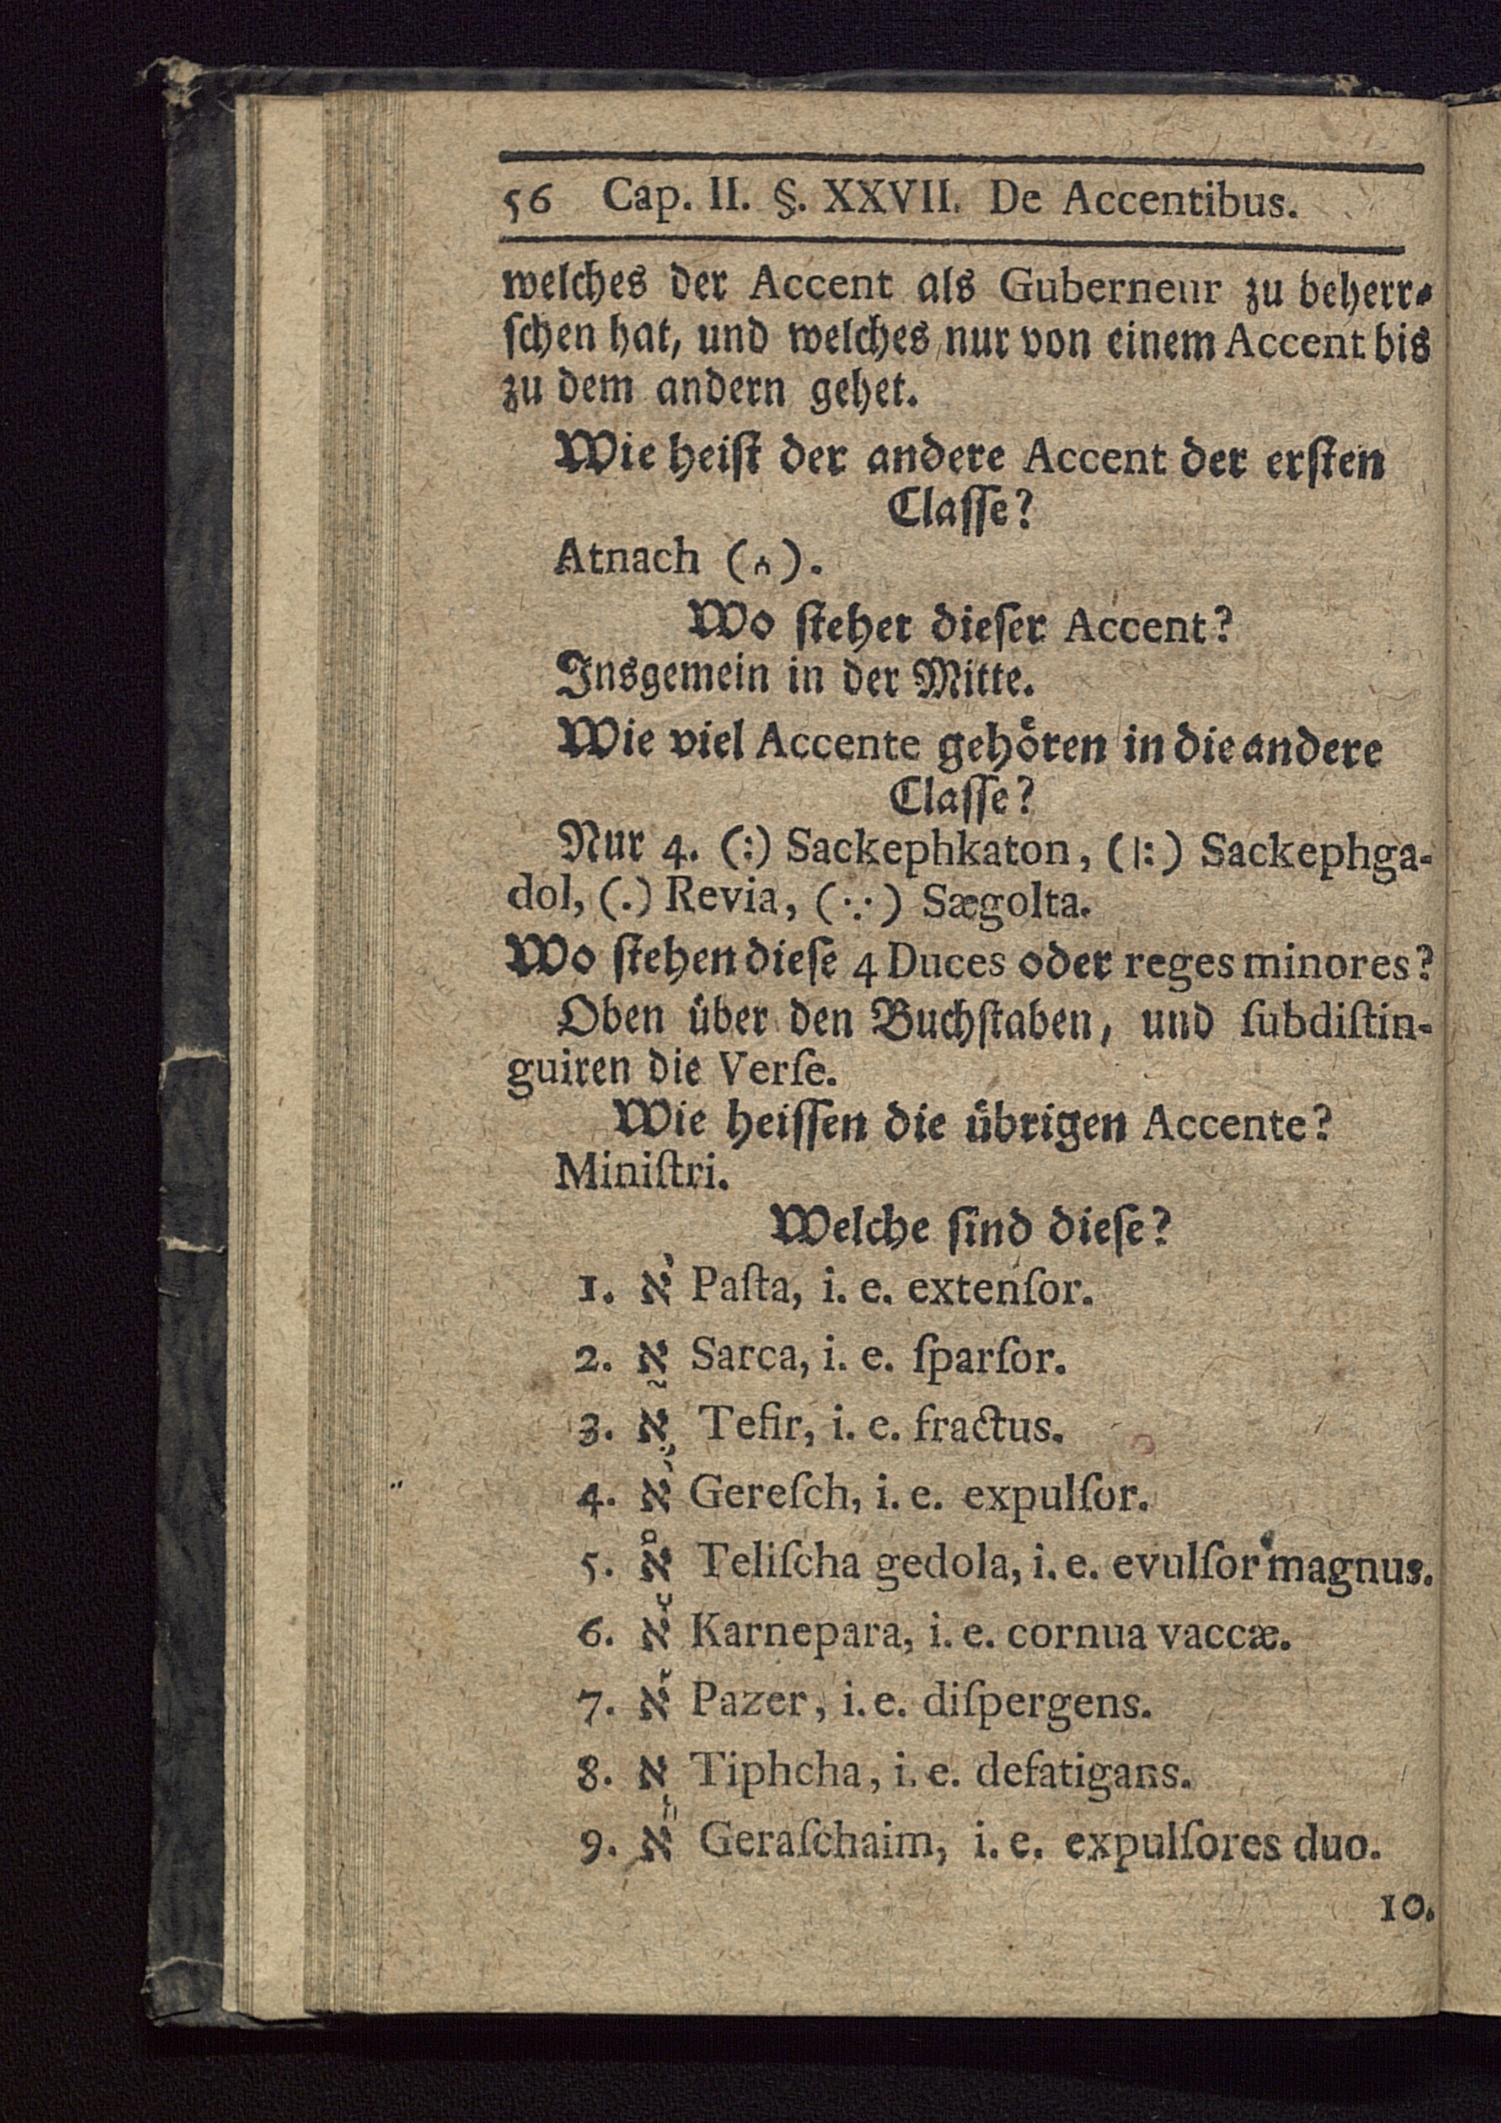 56 Cap. II. §. XXVII. De Accentibus.
welches der Accent als Guberneur zu beherr-
ſchen hat, und welches nur von einem Accent bis
zu dem andern gehet.
Wie heiſt der andere Accent der erſten
Claſſe?
Atnach (֑).
Wo ſtehet dieſer Accent?
Insgemein in der Mitte.
Wie viel Accente gehoͤren in die andere
Claſſe?
Nur 4. (:) Sackephkaton, (|:) Sackephga-
dol, (.) Revia, (∵) Sægolta.
Wo ſtehen dieſe 4 Duces oder reges minores?
Oben uͤber den Buchſtaben, und ſubdiſtin-
guiren die Verſe.
Wie heiſſen die uͤbrigen Accente?
Miniſtri.
Welche ſind dieſe?
1. א֙ Paſta, i. e. extenſor.
2. א Sarca, i. e. ſparſor.
3. א֛ Tefir, i. e. fractus.
4. א֜ Gereſch, i. e. expulſor.
5. א֠ Teliſcha gedola, i. e. evulſor magnus.
6. א֟ Karnepara, i. e. cornua vaccæ.
7. א֡ Pazer, i. e. diſpergens.
8. א֖ Tiphcha, i. e. defatigans.
9. א֞ Geraſchaim, i. e. expulſores duo.
10.